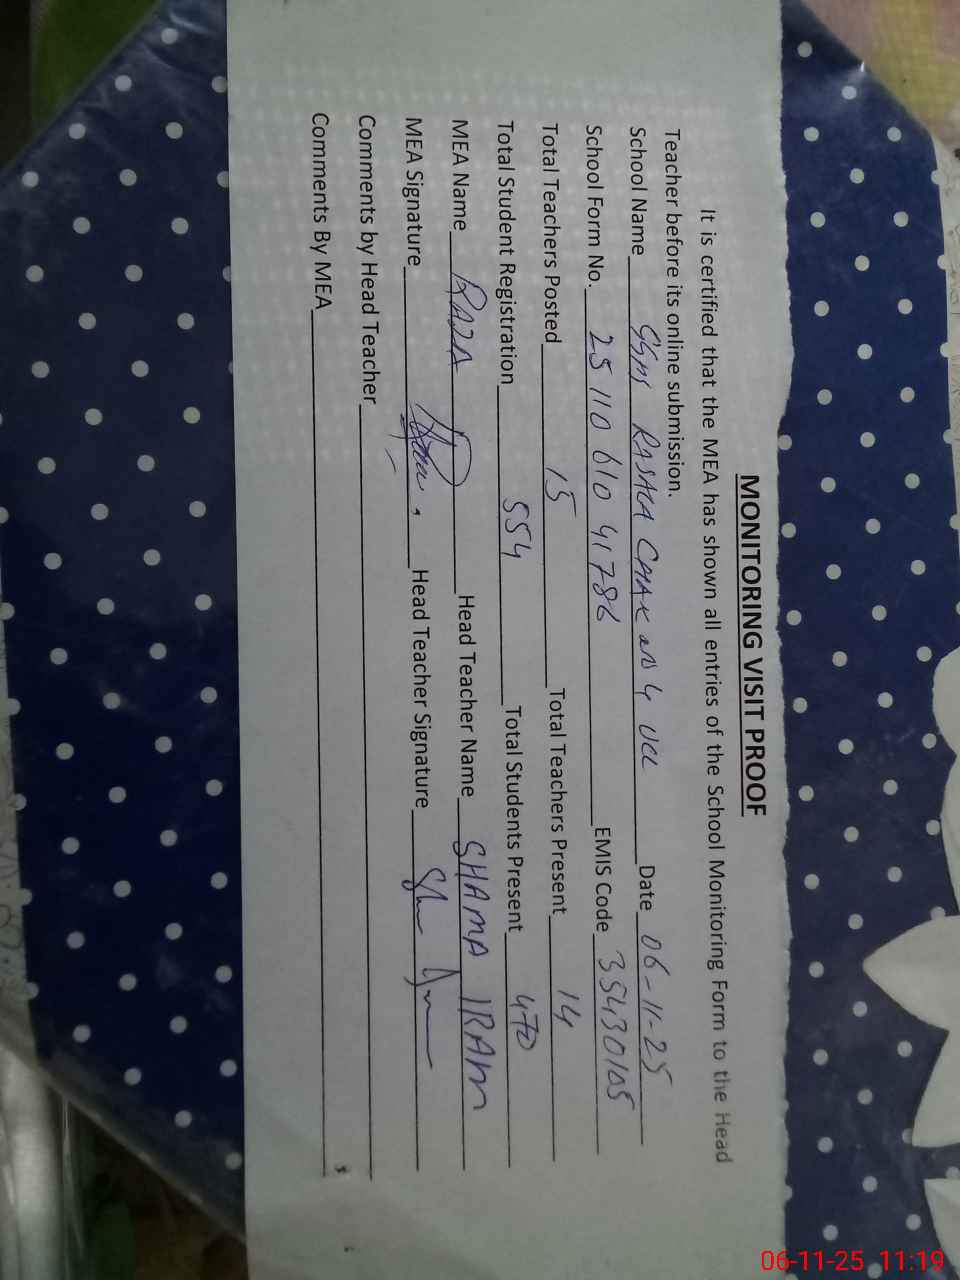 MONITORING VISIT PROOF
It is certified that the MEA has shown all entries of the School Monitoring Form to the Head
Teacher before its online submission.
School Name GGMS RASALA CHAK no 4 UCC Date 06-11-25
School Form No. 25 110 610 41786 EMIS Code 35430105
Total Teachers Posted 15 Total Teachers Present 14
Total Student Registration 554 Total Students Present 470
MEA Name RAZA Head Teacher Name SHAMA IRAM
MEA Signature Head Teacher Signature
Comments by Head Teacher
Comments By MEA
06-11-25 11:19